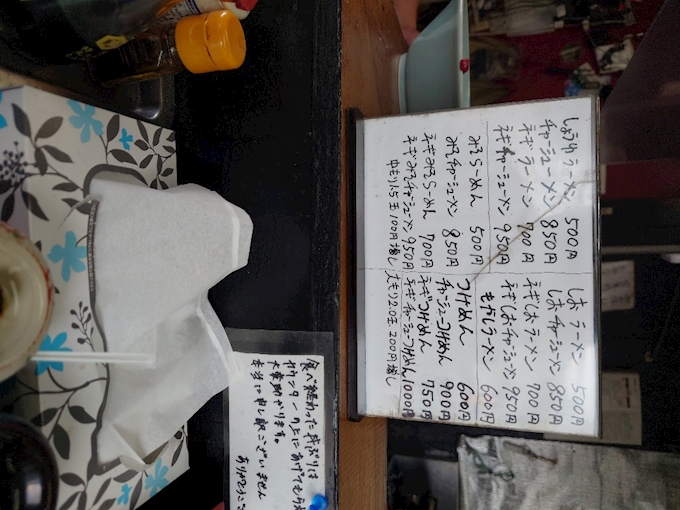 しょうゆラーメン 500円
チャーシューメン 850円
ネギラーメン 700円
ネギチャーシューメン 950円
みそらーめん 500円
みそチャーシューメン 850円
ネギみそらーめん 700円
ネギみそチャーシューメン 950円
中もり1.5玉 100円増し 大もり2.0玉 200円増し
しおラーメン 500円
しおチャーシューメン 850円
ネギしおラーメン 700円
ネギしおチャーシューメン 950円
もやしラーメン 600円
つけめん 600円
チャーシューつけめん 900円
ネギつけめん 750円
ネギチャーシューつけめん 1000円
食べ終わった丼ぶりは
カウンターの上にあげてもらえ
大変助かります。
本当に申し訳ございません
ありがとうござ